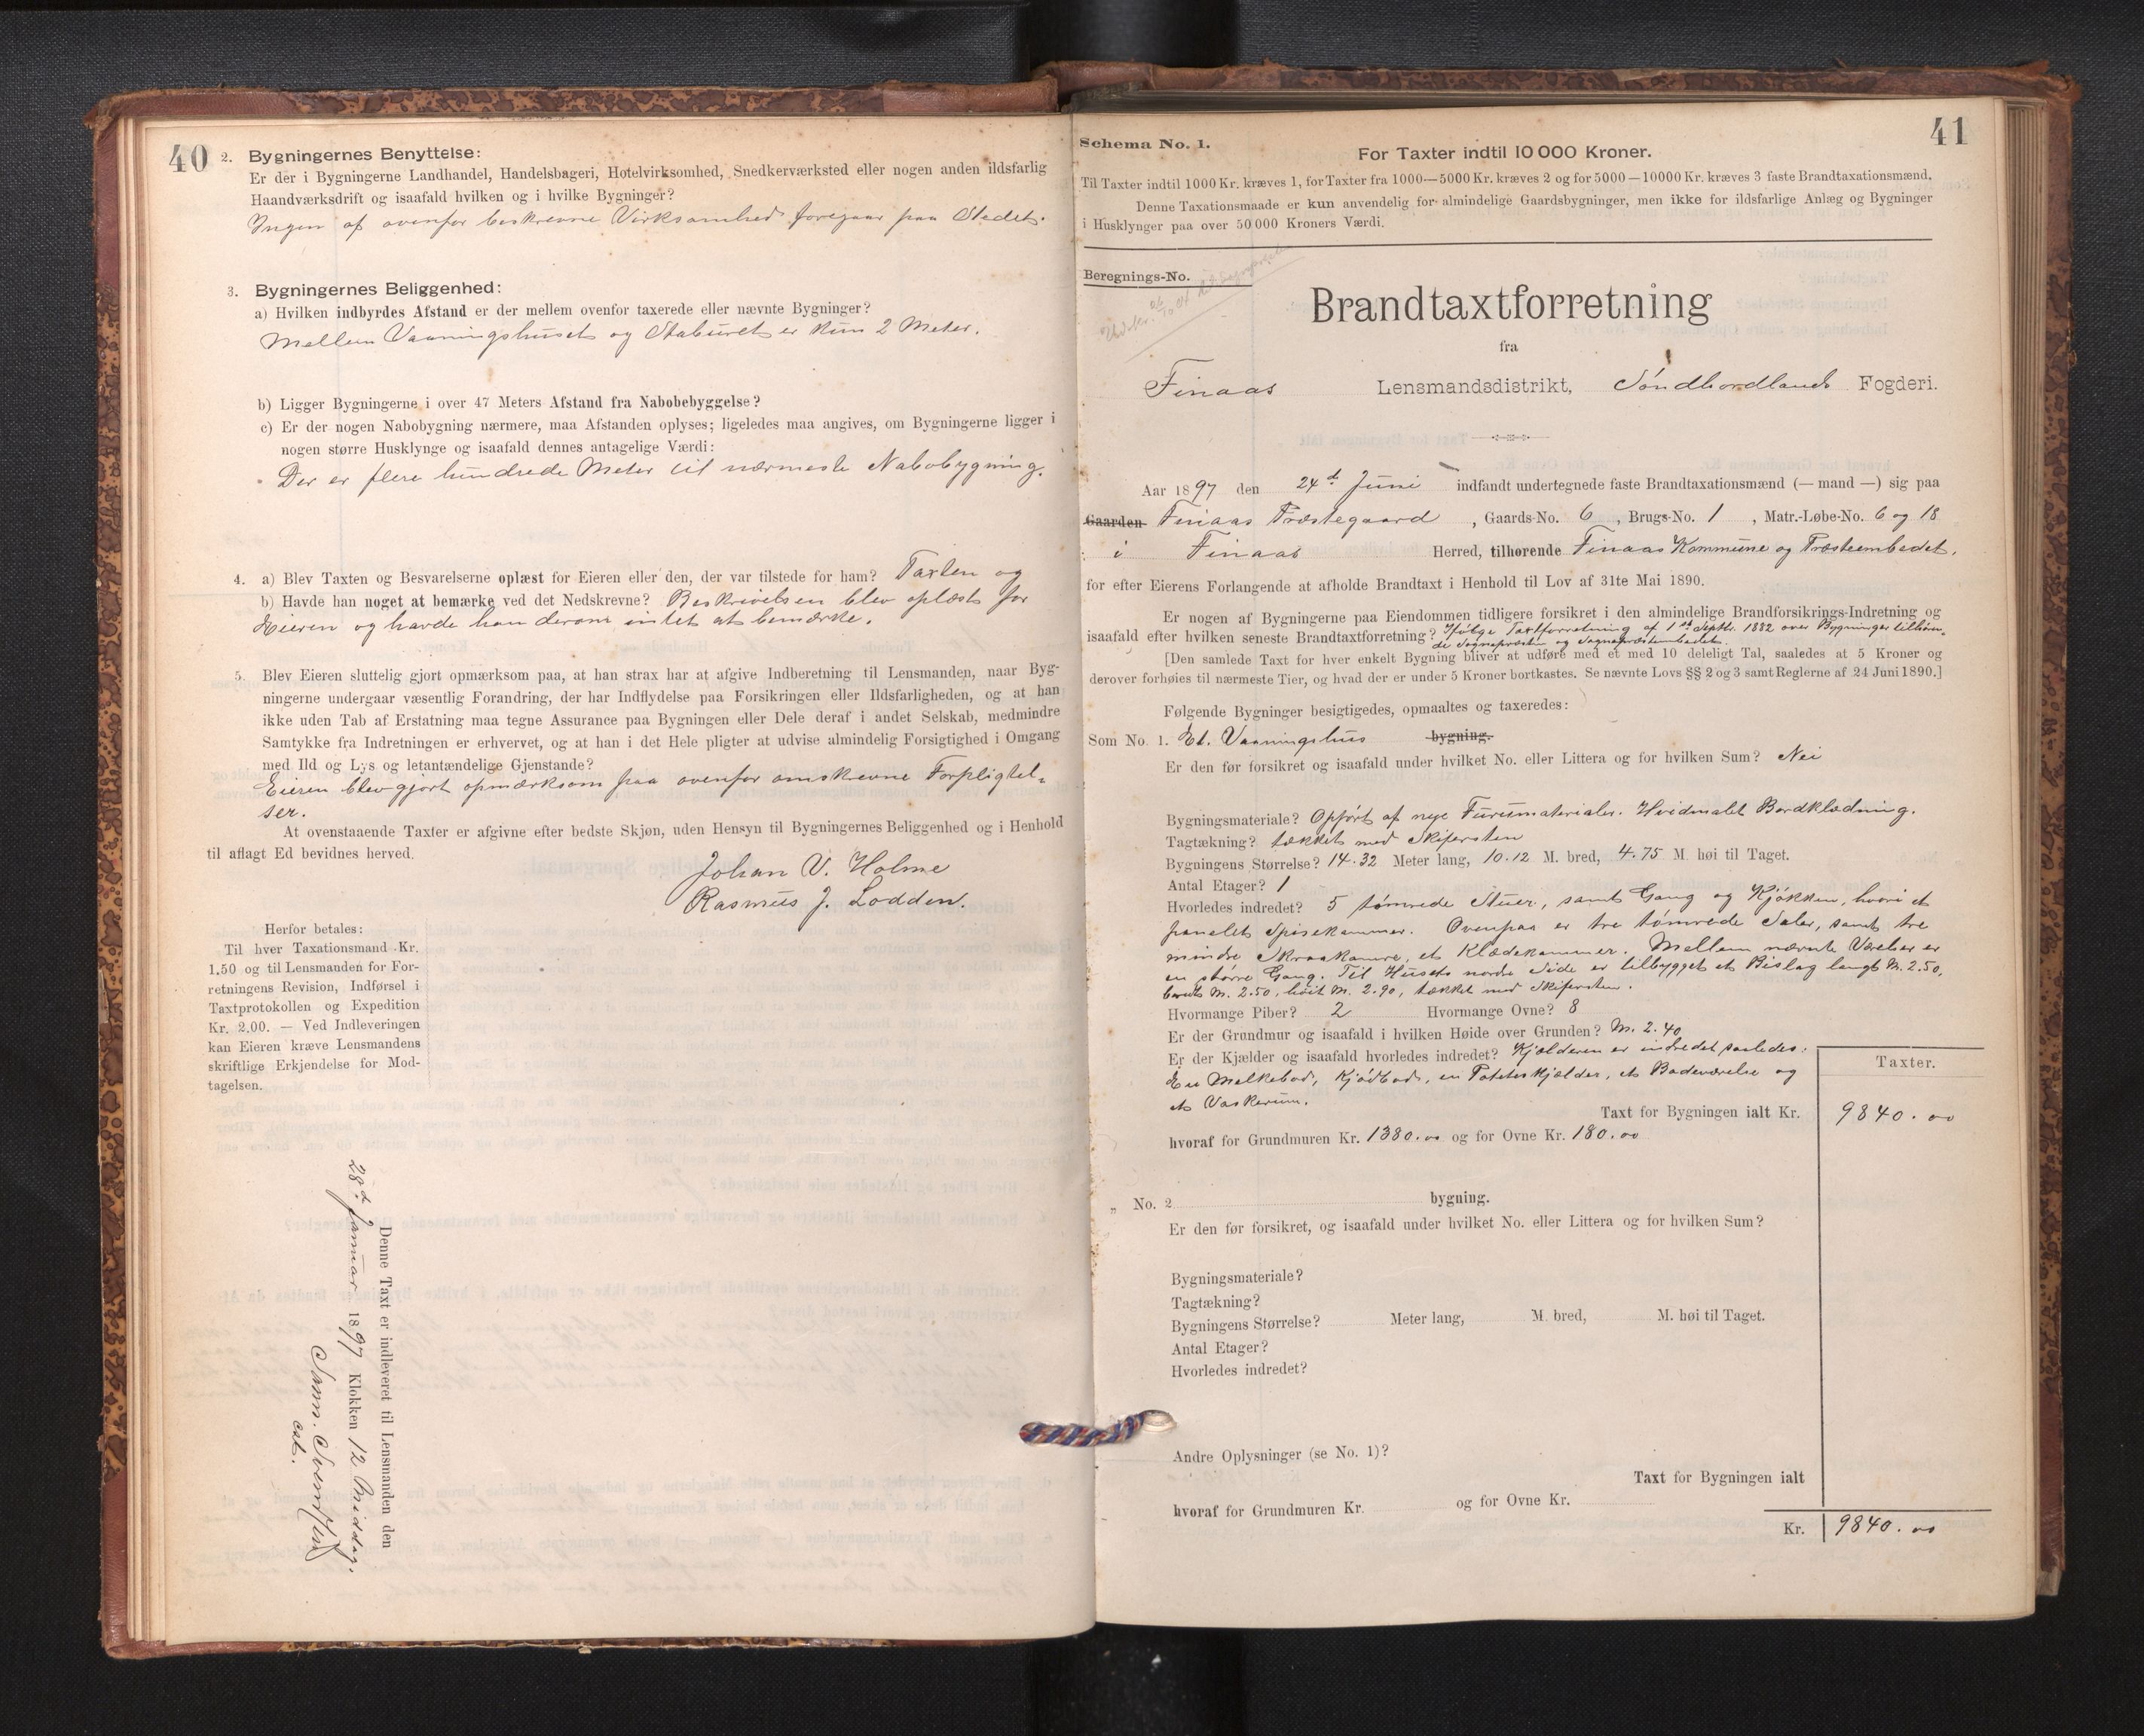 40
2. Bygningernes Benyttelse:
Er der i Bygningerne Landhandel, Handelsbageri, Hotelvirksomhed, Snedkerværksted eller nogen anden ildsfarlig
Haandværksdrift og isaafald hvilken og i hvilke Bygninger?
Ingen af ovenfor beskrevne Virksomhed foregaar paa Stedet.
3. Bygningernes Beliggenhed:
a) Hvilken indbyrdes Afstand er der mellem ovenfor taxerede eller nævnte Bygninger?
Mellem Vaaningshuset og Staburet er kun 2 Meter.
b) Ligger Bygningerne i over 47 Meters Afstand fra Nabobebyggelse?
c) Er der nogen Nabobygning nærmere, maa Afstanden oplyses; ligeledes maa angives, om Bygningerne ligger i
nogen større Husklynge og isaafald dennes antagelige Værdi:
Der er flere hundrede Meter til nærmeste Nabobygning.
4. a) Blev Taxten og Besvarelserne oplæst for Eieren eller den, der var tilstede for ham? Taxten og
b) Havde han noget at bemærke ved det Nedskrevne? Beskrivelsen blev oplæst for
Eieren og havde han derom intet at bemærke.
5. Blev Eieren sluttelig gjort opmærksom paa, at han strax har at afgive Indberetning til Lensmanden, naar Byg-
ningerne undergaar væsentlig Forandring, der har Indflydelse paa Forsikringen eller Ildsfarligheden, og at han
ikke uden Tab af Erstatning maa tegne Assurance paa Bygningen eller Dele deraf i andet Selskab, medmindre
Samtykke fra Indretningen er erhvervet, og at han i det Hele pligter at udvise almindelig Forsigtighed i Omgang
med Ild og Lys og letantændelige Gjenstande?
Eieren blev gjort opmærksom paa ovenfor omskrevne Forpligtel-
ser.
At ovenstaaende Taxter er afgivne efter bedste Skjøn, uden Hensyn til Bygningernes Beliggenhed og i Henhold
til aflagt Ed bevidnes herved.
Johan V. Holme
Rasmus J. Lodden.
Herfor betales:
Til hver Taxationsmand Kr.
1.50 og til Lensmanden for For-
retningens Revision, Indførsel i
Taxtprotokollen og Expedition
Kr. 2.00. — Ved Indleveringen
kan Eieren kræve Lensmandens
skriftlige Erkjendelse for Mod-
tagelsen.
Denne Taxt er indleveret til Lensmanden den
28d Januar 1897 Klokken 12 Middag.
41
Schema No. 1.
For Taxter indtil 10 000 Kroner.
Til Taxter indtil 1000 Kr. kræves 1, for Taxter fra 1000—5000 Kr. kræves 2 og for 5000—10000 Kr. kræves 3 faste Brandtaxationsmænd.
Denne Taxationsmaade er kun anvendelig for almindelige Gaardsbygninger, men ikke for ildsfarlige Anlæg og Bygninger
i Husklynger paa over 50 000 Kroners Værdi.
Beregnings-No.
Brandtaxtforretning
fra
Finaas Lensmandsdistrikt, Søndhordlands Fogderi.
Aar 1897 den 24d Juni indfandt undertegnede faste Brandtaxationsmænd (— mand —) sig paa
Gaarden Finaas Præstegaard, Gaards-No. 6, Brugs-No. 1, Matr.-Løbe-No. 6 og 18
i Finaas Herred, tilhørende Finaas Kommune og Præsteembedet.
for efter Eierens Forlangende at afholde Brandtaxt i Henhold til Lov af 31te Mai 1890.
Er nogen af Bygningerne paa Eiendommen tidligere forsikret i den almindelige Brandforsikrings-Indretning og
isaafald efter hvilken seneste Brandtaxtforretning? Ifølge Taxtforretning af 1ste Septbr. 1882 over Bygninger tilhøren-
de Sognepræsten og Sognepræstembedet.
[Den samlede Taxt for hver enkelt Bygning bliver at udføre med et med 10 deleligt Tal, saaledes at 5 Kroner og
derover forhøies til nærmeste Tier, og hvad der er under 5 Kroner bortkastes. Se nævnte Lovs §§ 2 og 3 samt Reglerne af 24 Juni 1890.]
Følgende Bygninger besigtigedes, opmaaltes og taxeredes:
Som No. 1. Et. Vaaningshus bygning.
Er den før forsikret og isaafald under hvilket No. eller Littera og for hvilken Sum? Nei
Bygningsmateriale? Opført af nye Furumaterialer. Hvidmalet Bordklædning.
Tagtækning? tækket med Skifersten
Bygningens Størrelse? 14.32 Meter lang, 10.12 M. bred, 4.75 M. høi til Taget.
Antal Etager? 1
Hvorledes indredet? 5 tømrede Stuer, samt Gang og Kjøkken, hvori et
panelet Spisekammer. Ovenpaa er tre tømrede Saler, samt tre
mindre Skraakamre, et Klædekammer. Mellem nævnte Værelser er
en større Gang. Til Husets nordre Side er tilbygget et Bislag langt M. 2.50,
bredt M. 2.50, høit M. 2.90, tækket med Skifersten.
Hvormange Piber? 2 Hvormange Ovne? 8
Er der Grundmur og isaafald i hvilken Høide over Grunden? M. 2.40
Er der Kjælder og isaafald hvorledes indredet? Kjælderen er indredet saaledes:
En Melkebod, Kjødbod, en Potetes kjælder, et Badeværelse og
et Vaskerum.
Taxter.
Taxt for Bygningen ialt Kr. 9840.00
hvoraf for Grundmuren Kr. 1380.00 og for Ovne Kr. 180.00
„ No. 2 bygning.
Er den før forsikret, og isaafald under hvilket No. eller Littera og for hvilken Sum?
Bygningsmateriale?
Tagtækning?
Bygningens Størrelse? Meter lang, M. bred, M. høi til Taget.
Antal Etager?
Hvorledes indredet?
Andre Oplysninger (se No. 1)?
Taxt for Bygningen ialt
hvoraf for Grundmuren Kr. og for Ovne Kr.
Kr. 9840.00